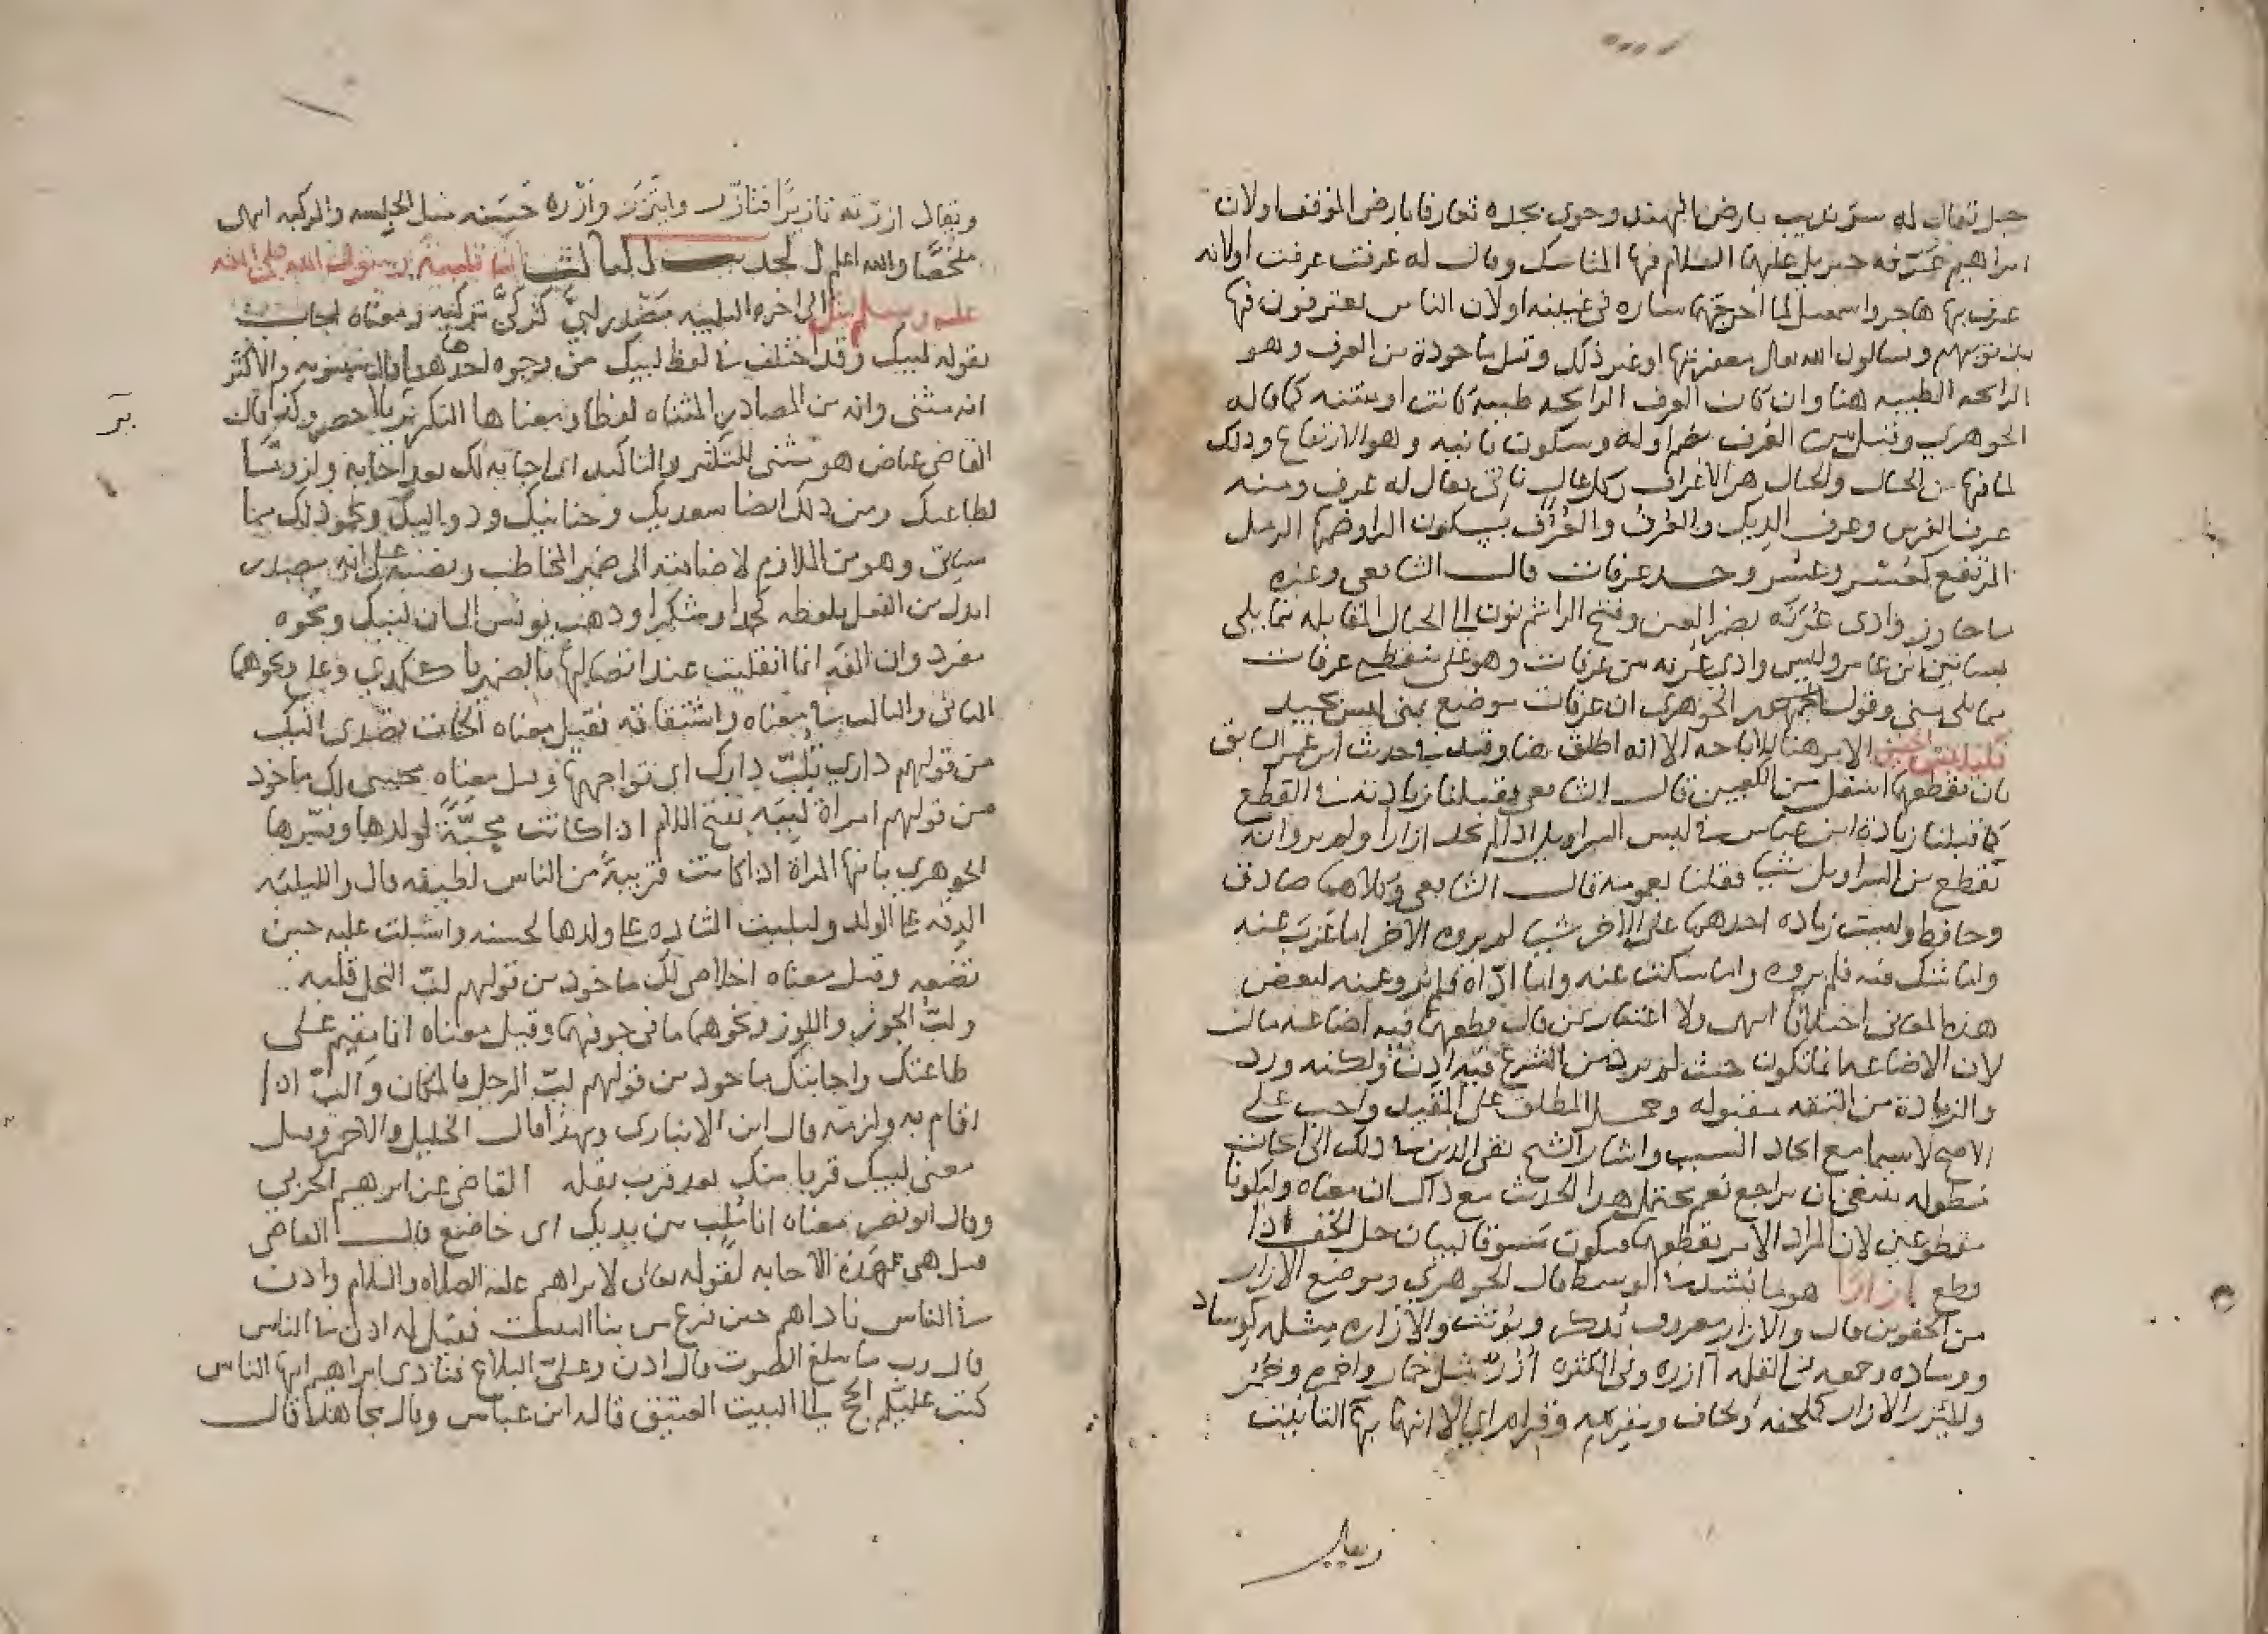 جبل يقال له سرنديب بارض الهند وحوى بجده تعارفا بارض الموقف اولان
ابراهيم عرفه جبريل عليهما السلام فيها المناسك وقال له عرفت عرفت اولانه
عرف بها هاجر واسمعيل لما اخرجتهما ساره في غيبته اولان الناس يعترفون فيها
بذنوبهم ويسالون الله تعالى مغفرتها او غير ذلك وقيل ماخوذة من العرف وهو
الرايحه الطيبه هنا وان كان العرف الرايحه طيبة كانت او منتنه كما قاله
الجوهري وقيل من العرف بضم اوله وسكون ثانيه وهو الارتفاع وذلك
لما فيها من الجبال والجبال هي الاعراف وكل عال ناتئ يقال له عرف ومنه
عرف الفرس وعرف الديك والعرف والعرف بسكون الرا وضمها الرمل
المرتفع كعسر وعسر وحد عرفات قال الشافعي وغيره
ما جاوز وادي عرنه بضم العين وفتح الرا ثم نون الى الجبال المقابله مما يلي
بساتين ابن عامر وليس وادي عرنه من عرفات وهو على منقطع عرفات
مما يلي منى وقول الجوهري ان عرفات موضع بمنى ليس بجيد
فليلبس الخفين الامر هنا للاباحه الا انه اطلق هنا وقيد في حديث ابن عمر السابق
بان يقطعهما اسفل من الكعبين قال الشافعي فقبلنا زيادته في القطع
كما قبلنا زيادة ابن عباس في لبس السراويل اذا لم يجد ازارا ولم يروا انه
يقطع من السراويل شيا فقلنا بعمومه قال الشافعي وكلاهما صادق
وحافظ وليست زياده احدهما على الاخر شيا لم يروه الاخر اما عزب عنه
واما شك فيه فلم يروه واما سكت عنه واما اداه فلم يرو عنه لبعض
هذه المعاني اختلافا انتهى ولا اعتبار بمن قال قطعهما فيه اضاعه مال
لان الاضاعه انما تكون حيث لم يرد من الشرع فيه اذن ولكنه ورد
والزيادة من الثقه مقبوله وحمل المطلق على المقيد واجب على
الاصح لاسيما مع اتحاد السبب واشار الشيخ تقي الدين في ذلك الى ابحاث
مطوله ينبغي ان يراجع نعم يحتمل هذا الحديث مع ذاك ان معناه وليكونا
مقطوعين لان المراد الامر بقطعهما فيكون مسوقا لبيان حل الخف اذا
قطع ازارا هو ما يشد في الوسط قال الجوهري وموضع الازار
من الحقوين قال والازار معروف يذكر ويؤنث والازاره مثله كوساد
ووساده وجمعه في القله آازره وفي الكثره أزر مثل خمار واخمره وخمر
والمئزر الازار كملحفه ولحاف ومقرمه وقرام اي الا انها بها التانيث
ويقال
ويقال ازرته تازيرا فتازر وايتزر وازره حسنه مثل الجلسه والركبه انتهى
ملخصا والله اعلم الحديث الثالث ان تلبية رسول الله صلى الله
عليه وسلم الى اخره التلبيه مصدر لبى كزكى تزكيه ومعناه اجاب
بقوله لبيك وقد اختلف في لفظ لبيك من وجوه احدها قال سيبويه والاكثر
انه مثنى وانه من المصادر المثناه لفظا ومعناها التكرير بلا حصر وكذا قال
القاضي عياض هو مثنى للتكثير والتاكيد اي اجابة لك بعد اجابة ولزوما
لطاعتك ومن ذلك ايضا سعديك وحنانيك ودواليك ونحو ذلك مما
سياتي وهو من الملازم لاضافته الى ضمير المخاطب ونصبه على انه مصدر
ابدل من الفعل بلفظه كحمدا وشكرا وذهب يونس الى ان لبيك ونحوه
مفرد وان الفه انما انقلبت عند اتصالها بالضمير يا كلدي وعلي ونحوهما
الثاني والثالث في معناه واشتقاقه فقيل معناه اتجاهي وقصدي اليك
من قولهم داري تلب دارك اي تواجهها وقيل معناه محبتي لك ماخوذ
من قولهم امراة لبيه بفتح اللام اذا كانت محبة لولدها وفسرها
الجوهري بانها المراة اذا كانت قريبة من الناس لطيفه قال واللبلبه
الرقه على الولد ولبلبت الشاه على ولدها لحسته واشبلت عليه حين
تضعه وقيل معناه اخلاصي لك ماخوذ من قولهم لب النخل قلبه
ولب الجوز واللوز ونحوهما ما في جوفهما وقيل معناه انا مقيم على
طاعتك واجابتك ماخوذ من قولهم لب الرجل بالمكان والب اذا
اقام به ولزمه قال ابن الانباري وبهذا قال الخليل والاحمر وقيل
معنى لبيك قربا منك بعد قرب نقله القاضي عن ابرهيم الحربي
وقال ابو نصر معناه انا ملب بين يديك اي خاضع قال القاضي
قيل هي هذه الاجابه لقوله تعالى لابراهيم عليه الصلاه والسلام واذن
في الناس ناداهم حين فرغ من بنا البيت فقيل له اذن في الناس
قال رب ما يبلغ الصوت قال اذن وعلي البلاغ فنادى ابراهيم ايها الناس
كتب عليكم الحج الى البيت العتيق قاله ابن عباس وقال مجاهد قال